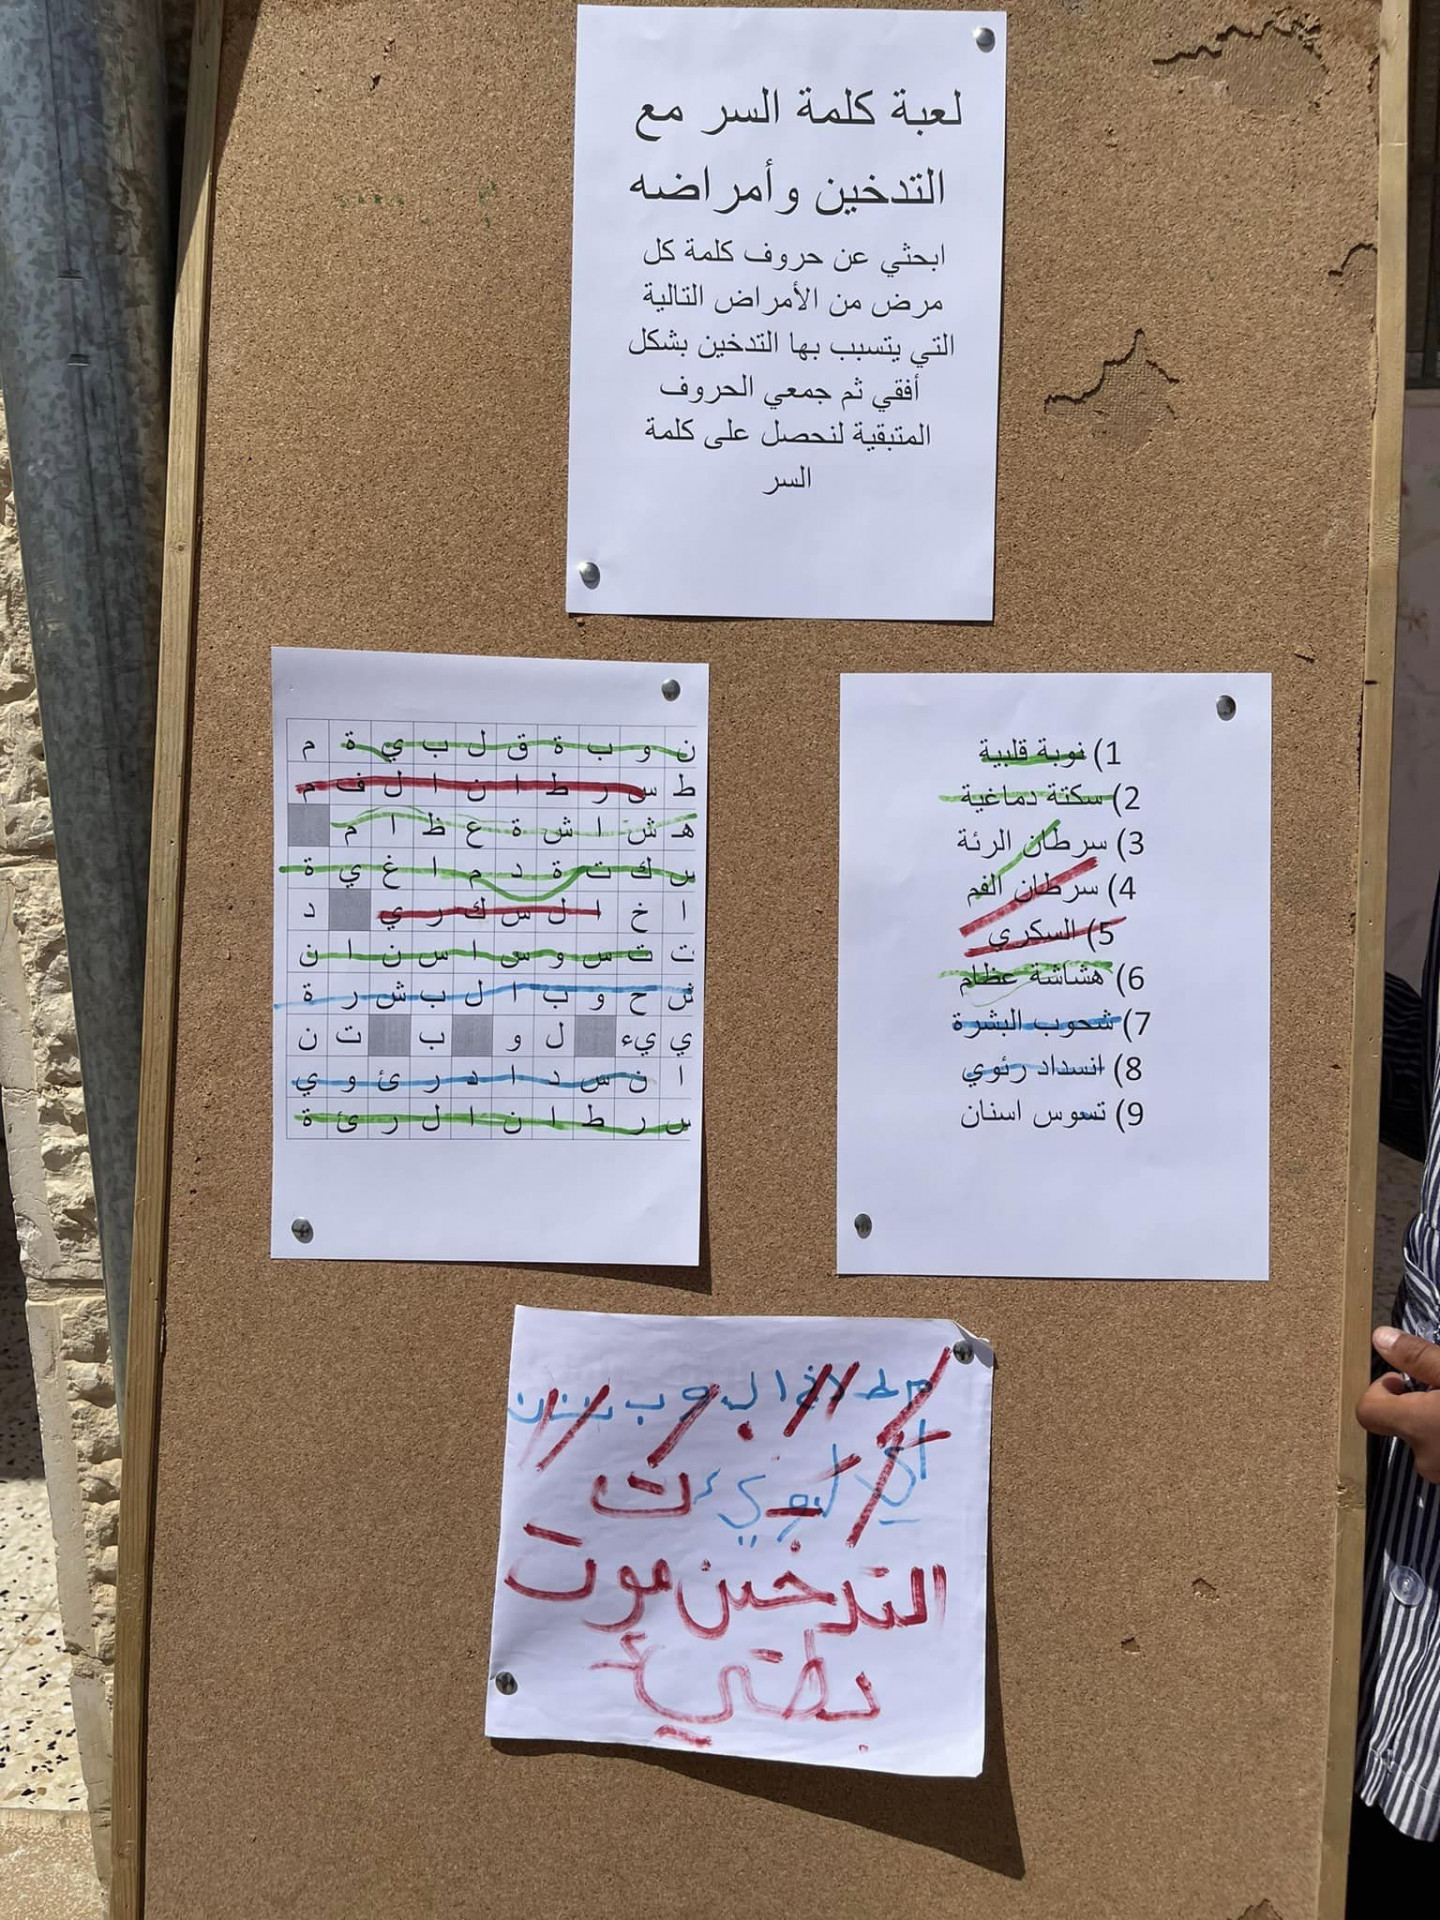 لعبة كلمة السر مع
التدخين وأمراضه
ابحثي عن حروف كلمة كل
مرض من الأمراض التالية
التي يتسبب بها التدخين بشكل
أفقي ثم جمعي الحروف
المتبقية لنحصل على كلمة
السر
ن و ب ة ق ل ب ي ة م
ط س ر ط ا ن ا ل ف م
هـ ش ا ش ة ع ظ ا م
س ك ت ة د م ا غ ي ة
ا خ ا ل س ك ر ي د
ت ت س و س ا س ن ا ن
ش ح و ب ا ل ب ش ر ة
ي يء ل و ب ت ن
ا ن س د ا د ر ئ و ي
س ر ط ا ن ا ل ر ئ ة
1) نوبة قلبية
2) سكتة دماغية
3) سرطان الرئة
4) سرطان الفم
5) السكري
6) هشاشة عظام
7) شحوب البشرة
8) انسداد رئوي
9) تسوس اسنان
التدخين موت
بطيء